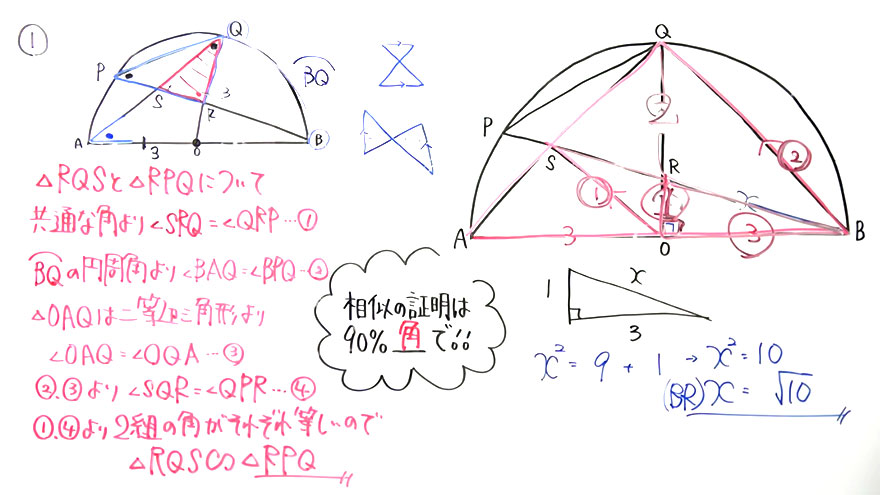 ①
Q
P
S
R
3
A
3
O
B
BQ
△RQSと△RPQについて
共通な角より∠SRQ=∠QRP…①
BQの円周角より∠BAQ=∠BPQ…②
△OAQは二等辺三角形より
∠OAQ=∠OQA…③
②.③より∠SQR=∠QPR…④
①.④より2組の角がそれぞれ等しいので
△RQS∽△RPQ
相似の証明は
90%角で!!
Q
P
S
R
②
①
x
A
3
O
③
B
1
x
3
x²=9+1→x²=10
(BR)x=√10